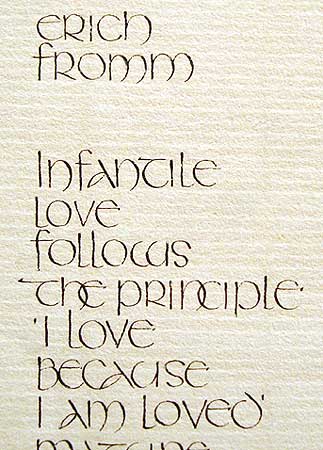 erich
fromm
Infantile
love
follows
the principle
'I love
because
I am loved'
mature